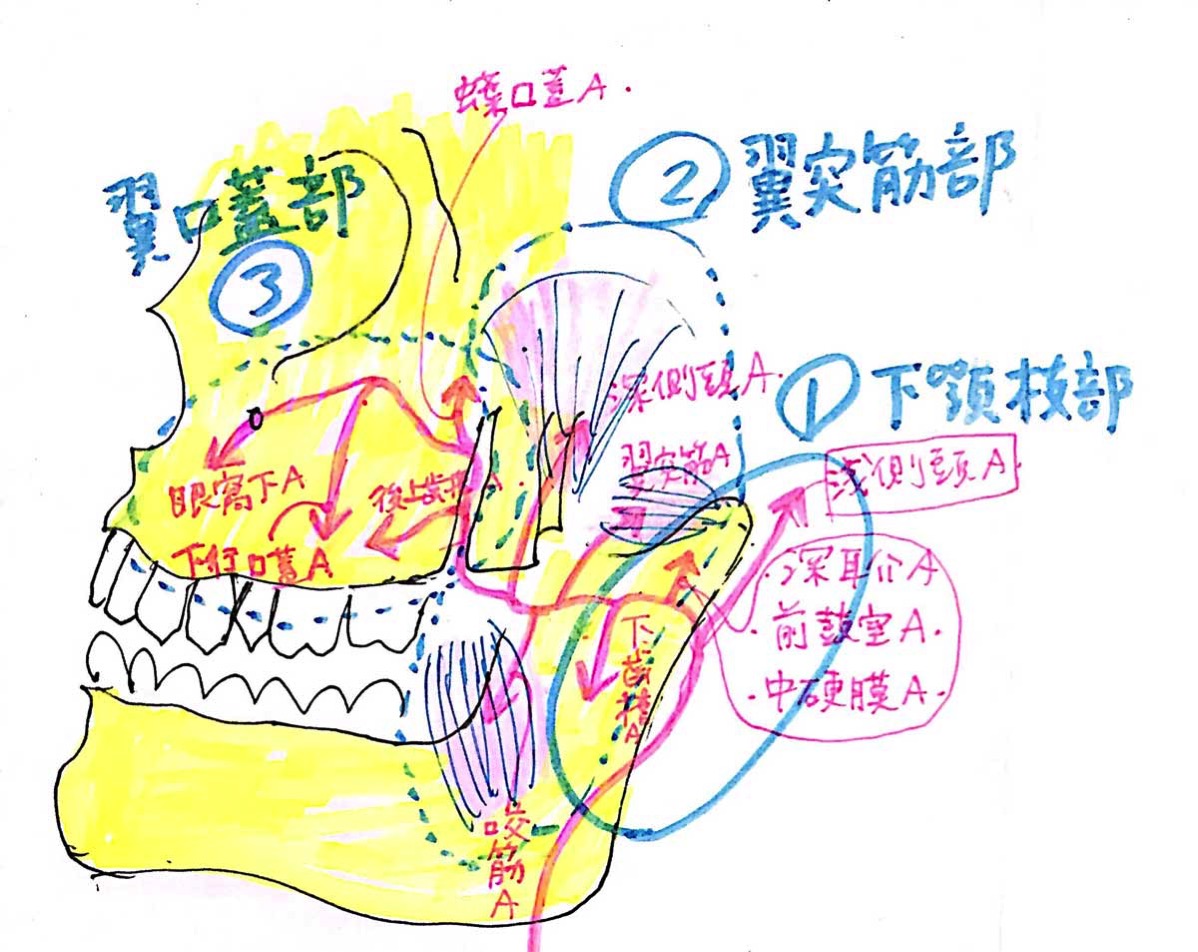 蝶口蓋A.
②翼突筋部
翼口蓋部
③
深側頭A.
①下顎枝部
翼突筋A
浅側頭A.
眼窩下A
後上歯槽A.
下行口蓋A
・深耳介A
・前鼓室A.
・中硬膜A.
下歯槽A
咬筋A